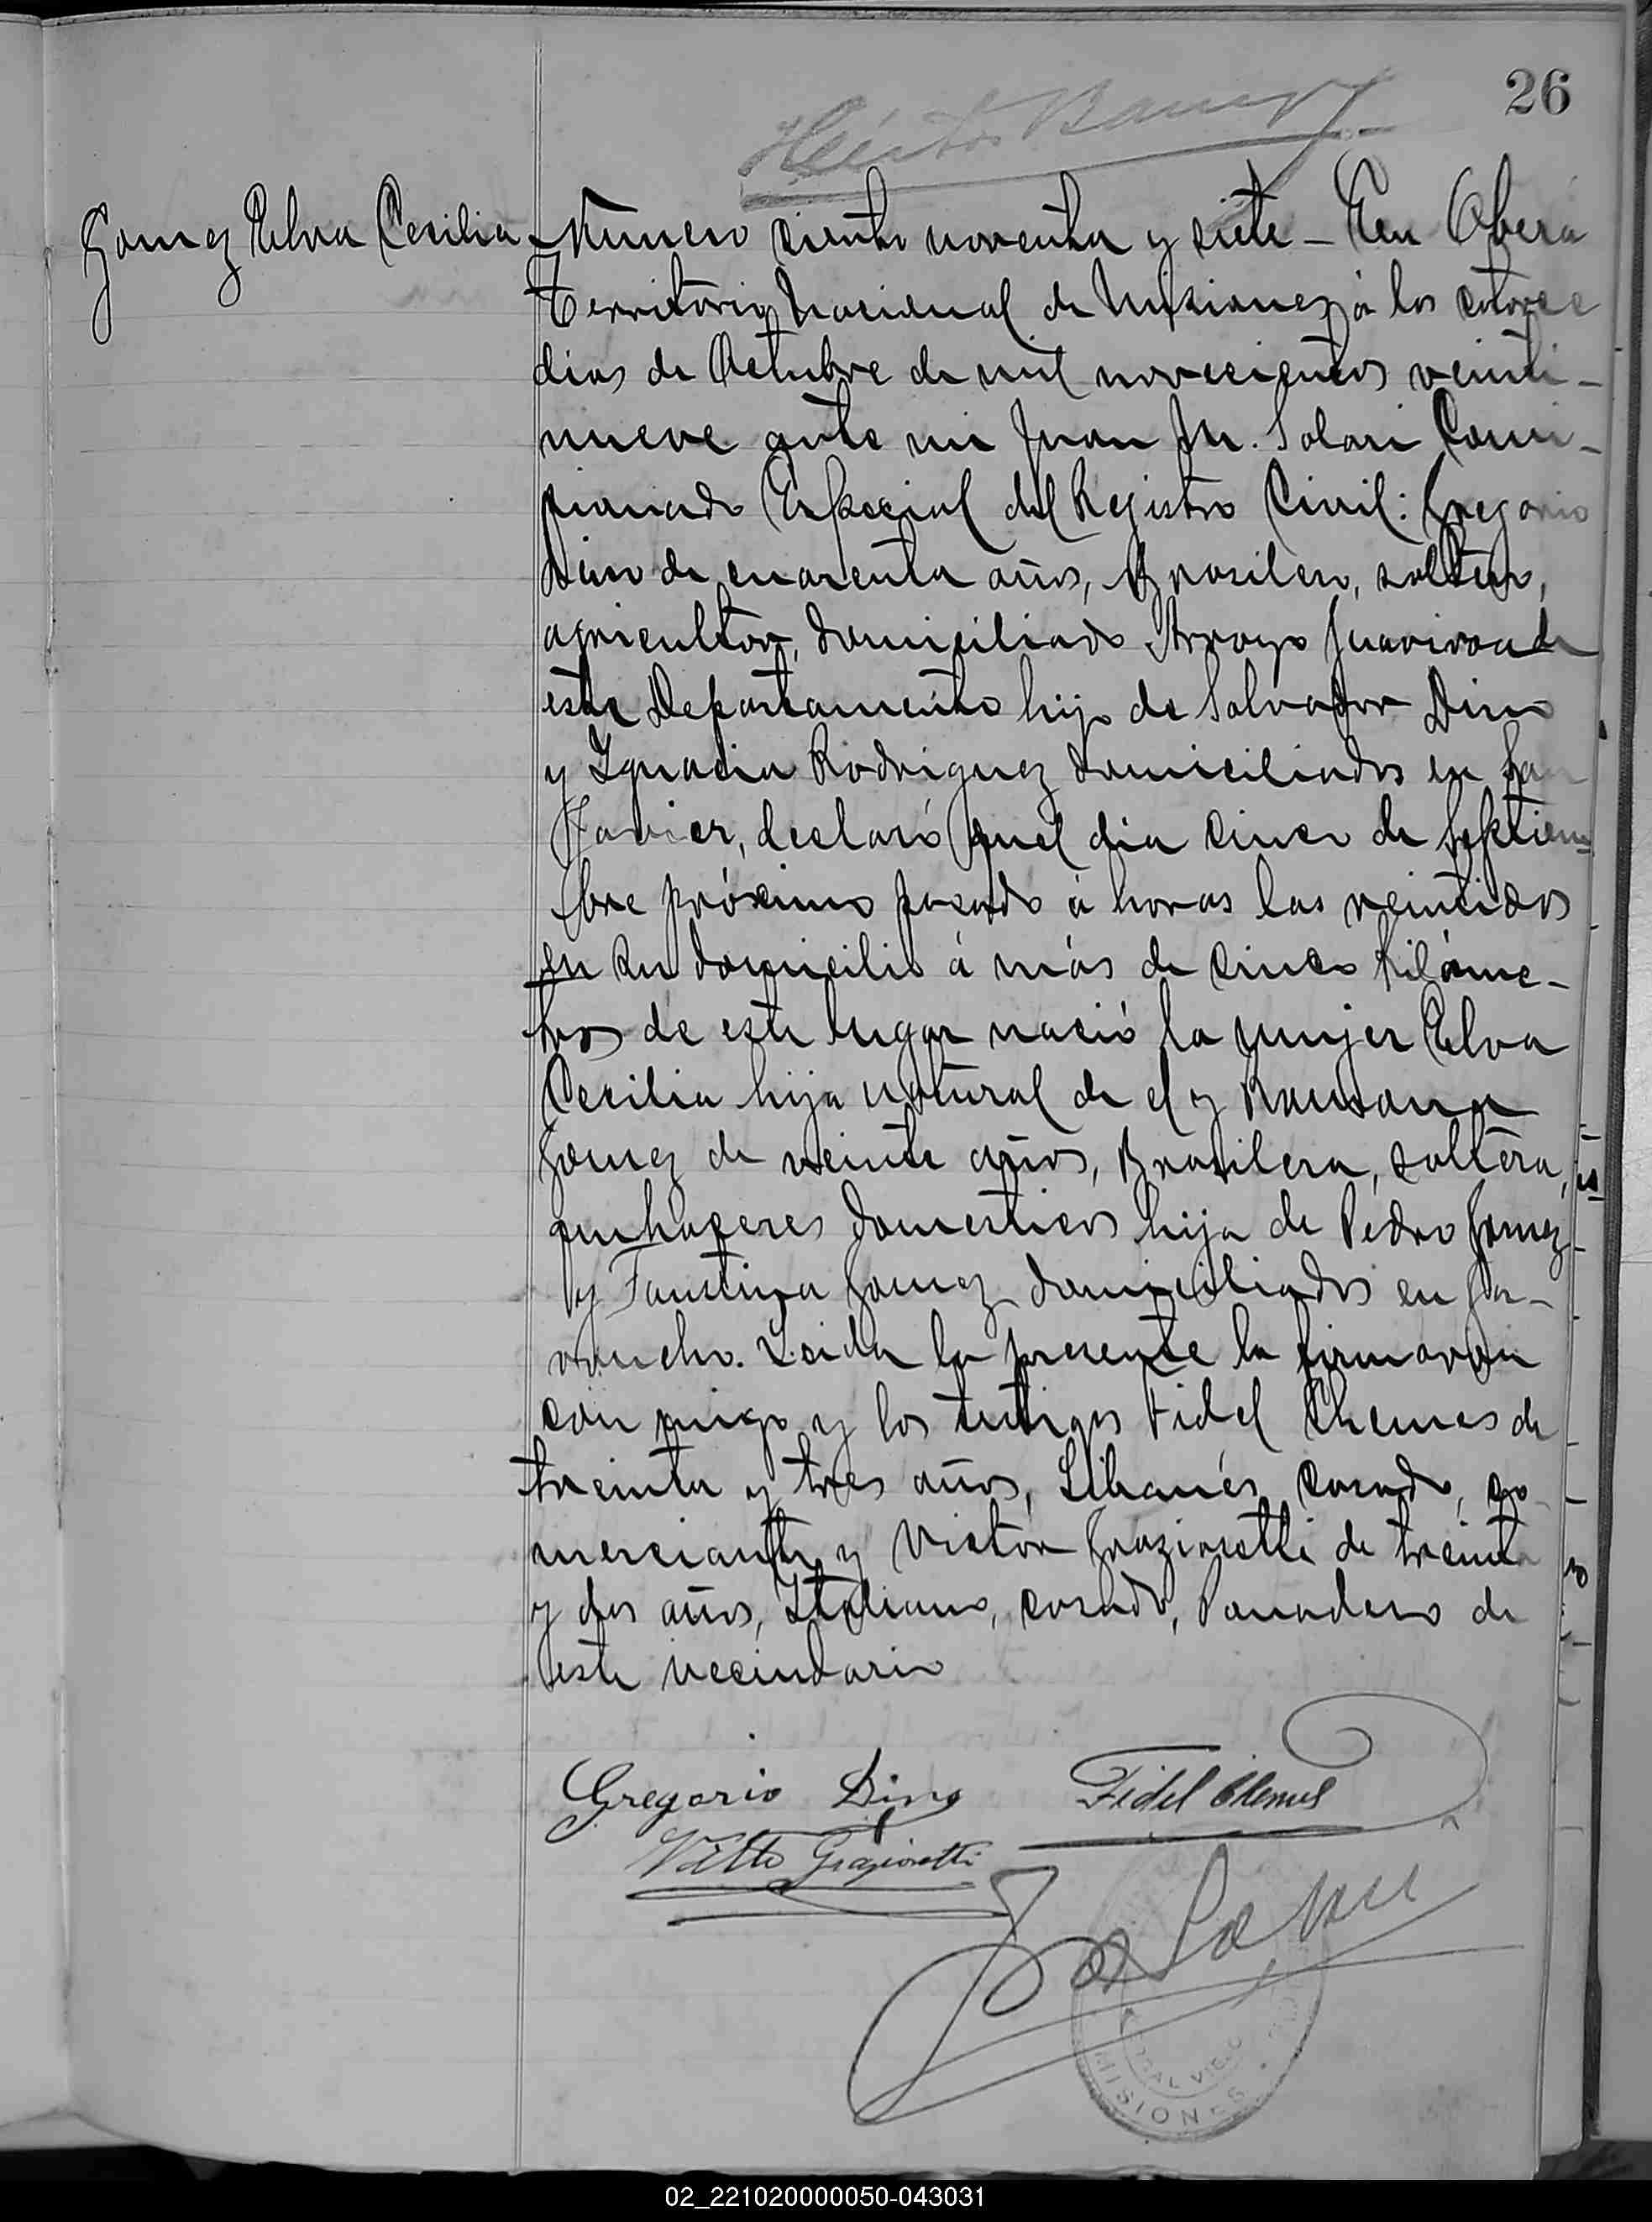 26
Héctor
Gomez Elva Cecilia
Número ciento noventa y siete - En Oberá
Territorio Nacional de Misiones, á los catorce
dias de Octubre de mil novecientos veinti-
nueve ante mi Juan M. Solari Comi-
sionado Especial del Registro Civil: Gregorio
Dino de cuarenta años, Brasilero, soltero,
agricultor, domiciliado Arroyo de
este Departamento hijo de Salvador Dino
y Ignacia Rodriguez domiciliados en San
Javier, declaró quel dia cinco de Septiem-
bre próximo pasado á horas las veintidos
en su domicilio á más de cinco kilóme-
tros de este lugar nació la mujer Elva
Cecilia hija natural de el y Ramona
Gomez de veinte años, Brasilera, soltera,
quehaceres domesticos hija de Pedro Gomez
y Faustina Gomez domiciliados en
Leida la presente la firmaron
con migo y los testigos Fidel Chemes de
treinta y tres años, Libanés, casado, co-
merciante y Victor Grazioretti de treinta
y dos años, Italiano, casado, Panadero de
este vecindario
Gregorio Dino
Fidel Chemes
Vitto Grazioretti
Solari
MISIONES
02_221020000050-043031